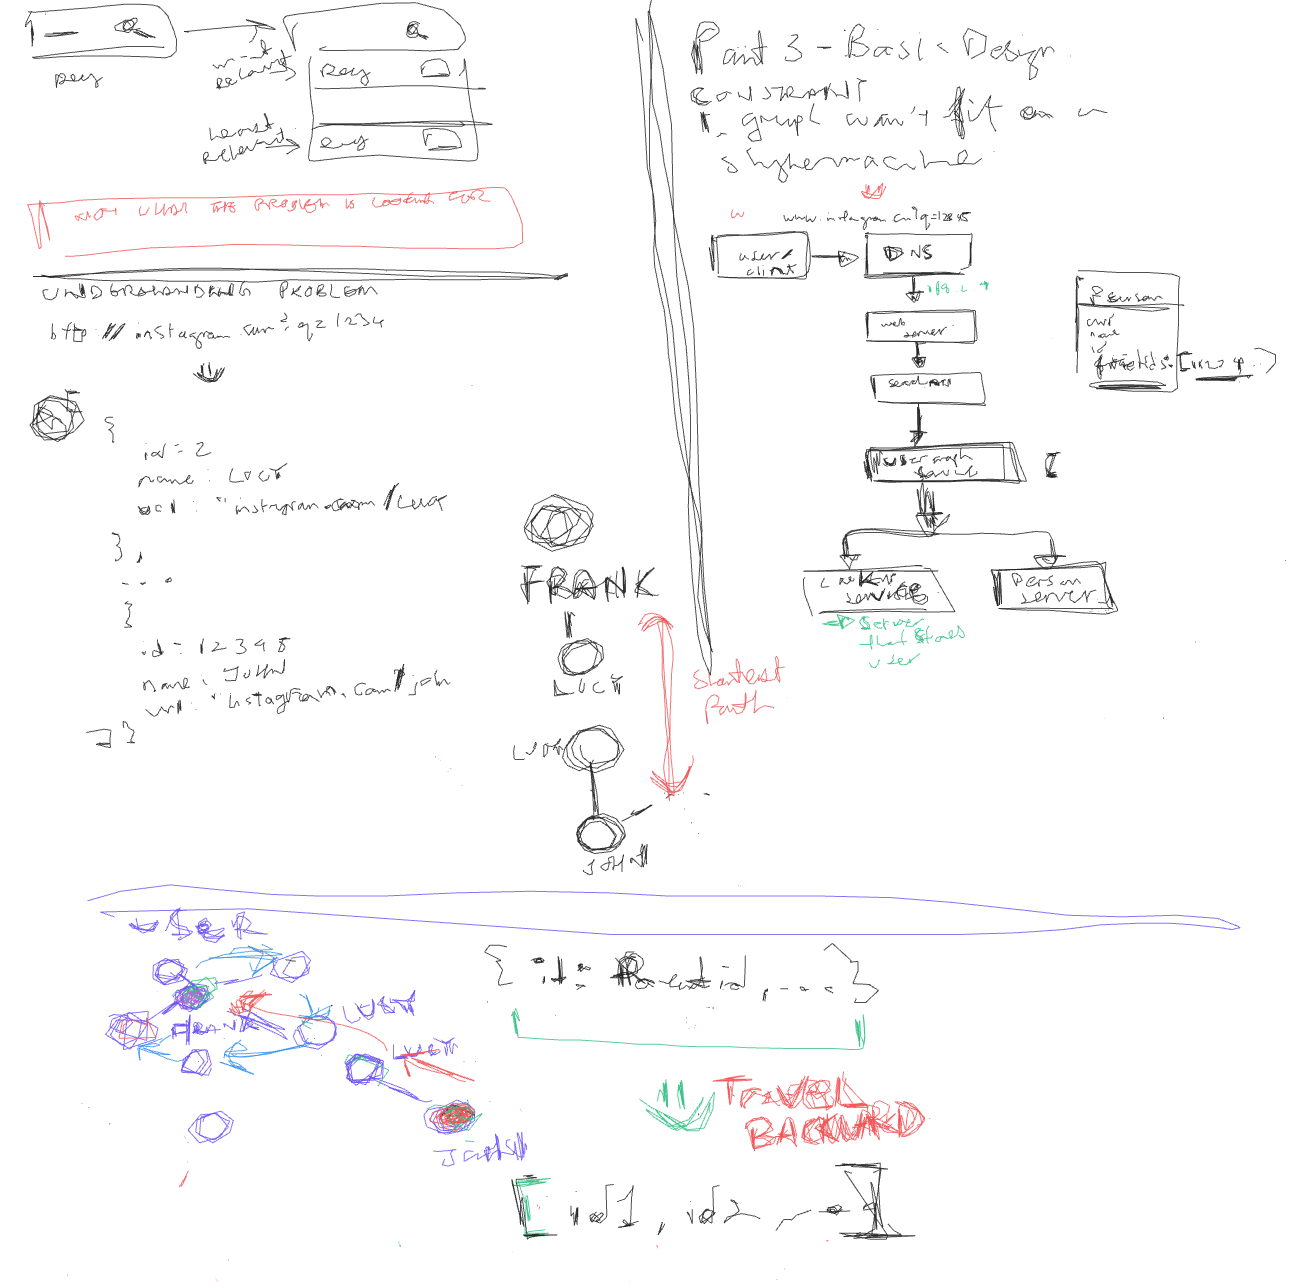 Relevant
Least
Relevant
WHAT THE PROBLEM IS LOOKING FOR
UNDERSTANDING PROBLEM
http // instagram.com?q=1234
{
id = 2
name: LUCY
url : "instagram.com/Lucy
},
- - -
{
id = 12345
name: JOHN
url: "instagram.com/john
]}
FRANK
LUCY
LUCY
JOHN
Shortest
Path
Part 3 - Basic Design
CONSTRAINT
1. graph won't fit on a
single machine
www.instagram.com?q=12345
user/
client
DNS
web
server
search API
user graph
service
Lookup
service
Person
server
Server
that stores
user
Person
url
name
id
friends: [
USER
FRANK
LUCY
LUCY
JOHN
{ id: Parent id, --- }
TRAVEL
BACKWARD
[ id1, id2, -- ]